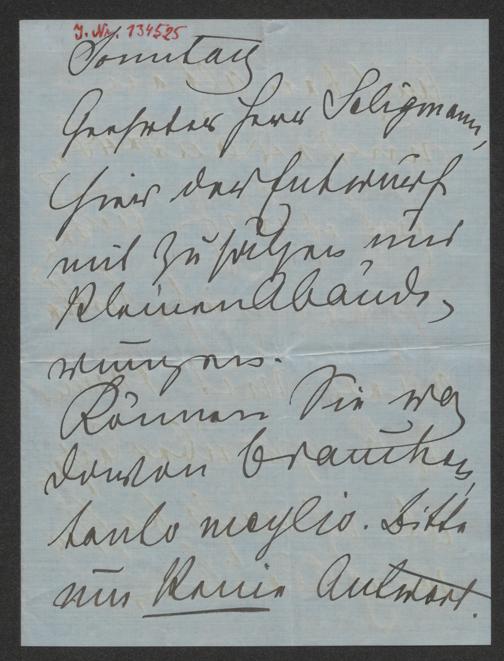 J. Nr. 134525
Sonntag
Geehrter Herr Seligmann,
hier der Entwurf
mit Zusätzen und
kleinen Abände-
rungen.
Können Sie was
davon brauchen,
tanto meglio. Bitte
nur keine Antwort.